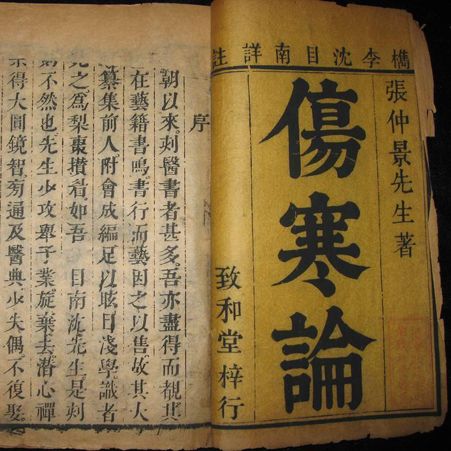 檇李沈目南詳註
張仲景先生著
傷寒論
致和堂梓行
序
朝以來刻醫書者甚多吾亦盡得而觀其
在藝籍書鳴書行而藝因之以售故其大
纂集前人附會成編足以眩目淺學識者
之為梨棗攢眉如吾 目南沈先生是刻
則不然也先生少攻舉子業旋棄去潛心禪
宗得大圓鏡智旁通及醫典少失偶不復娶